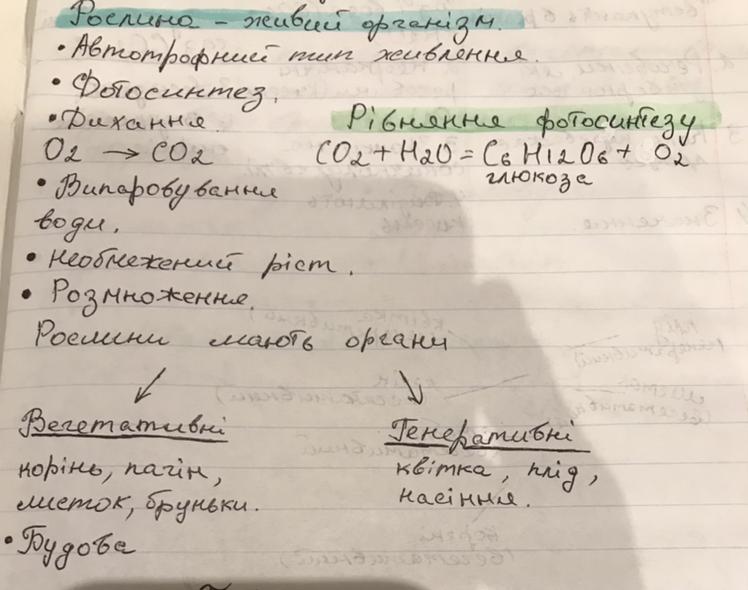 Рослина - живий організм.
• Автотрофний тип живлення.
• Фотосинтез.
• Дихання.
O2 → CO2
Рівняння фотосинтезу
CO2 + H2O = C6 H12O6 + O2
глюкоза
• Випаровування
води.
• Необмежений ріст.
• Розмноження.
Рослини мають органи
Вегетативні
корінь, пагін,
листок, бруньки.
Генеративні
квітка, плід,
насіння.
• Будова